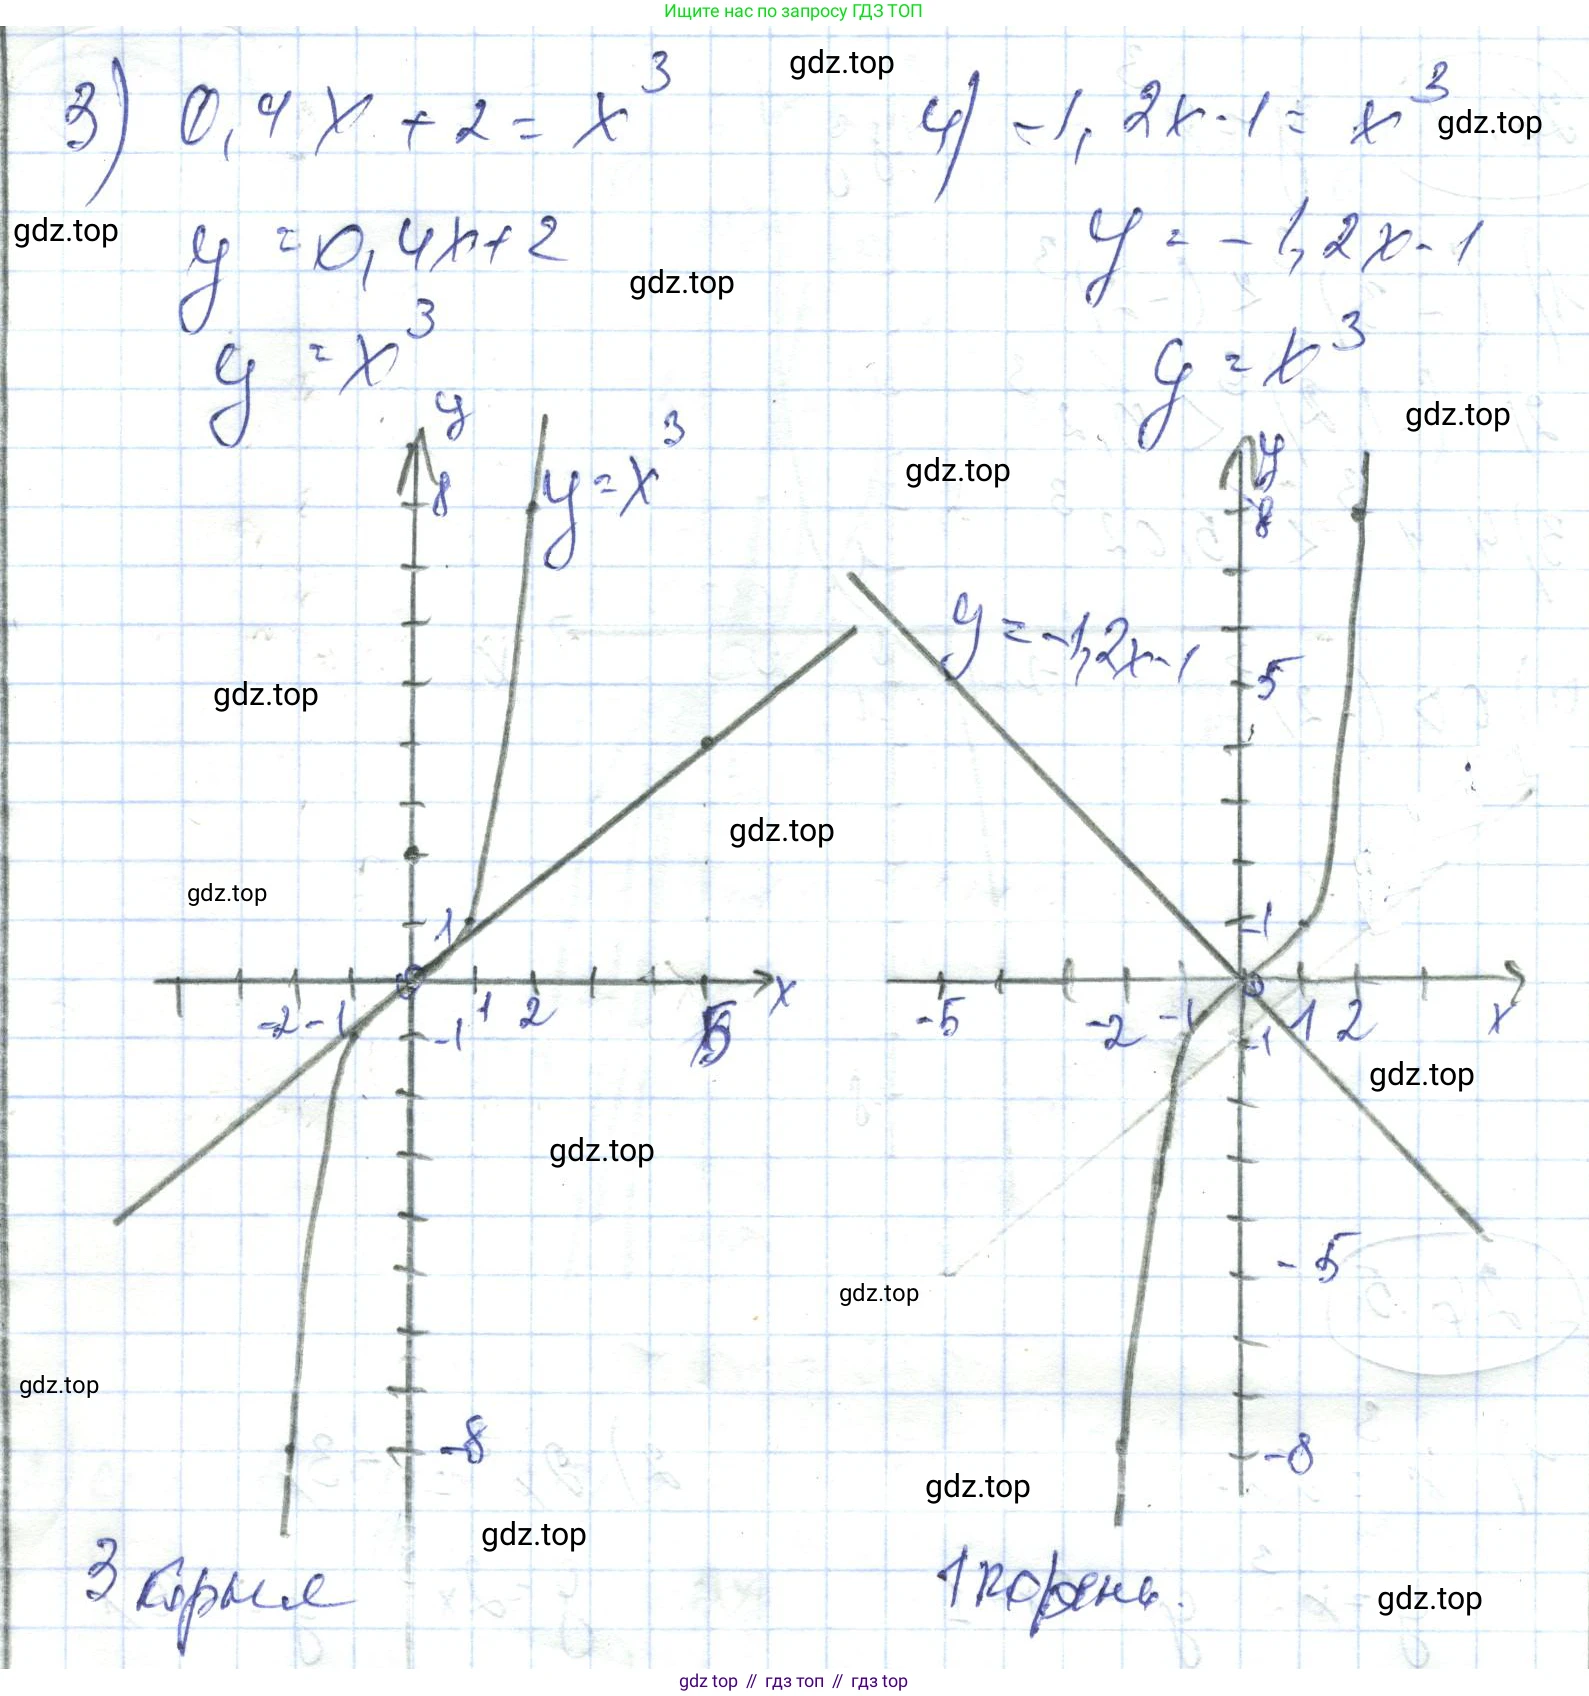 Ищите нас по запросу ГДЗ ТОП
gdz.top
3) 0,4x + 2 = x³
4) -1,2x-1= x³
gdz.top
gdz.top
y = 0,4x+2
y = -1,2x-1
gdz.top
y = x³
y = x³
gdz.top
y
y
gdz.top
8
y=x³
8
y = -1,2x-1
5
gdz.top
gdz.top
gdz.top
1
1
0
x
0
-2 -1
1
2
5
-5
-2
-1
1
2
x
-1
-1
gdz.top
gdz.top
-5
gdz.top
gdz.top
-8
-8
gdz.top
gdz.top
3 корня
1 корень.
gdz.top
gdz top // гдз топ // гдз top